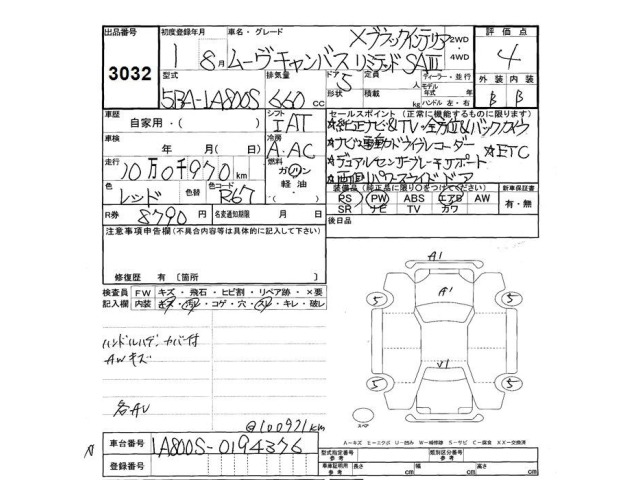 出品番号 3032
初度登録年月 1 8月
車名・グレード ムーヴキャンバス Xブラックインテリア リミテッド SAⅢ
2WD・4WD
評価点 4
型式 5BA-LA800S
排気量 660 cc
ドア 5
形状
定員 人
積載 kg
ディーラー・並行
モデル年式 年式
ハンドル 左・右
外装 B
内装 B
車歴 自家用・( )
シフト IAT
車検 年 月 日
冷房 A.AC
走行 10万0千970km
燃料 ガソリン 軽油 ・( )
色 レッド
色替
色コード R67
R券 8790円
名変通知期限 月 日
セールスポイント(正常に機能するものに限ります)
☆純正ナビ&TV・全方位&バックカメラ
☆ナビ連動ドライブレコーダー ☆ETC
☆デュアルセンサーブレーキサポート
☆両側パワースライドドア
装備品(純正品に限り○をつけてください)
PS PW ABS エアB AW
SR ナビ TV カワ
新車保証書 有・無
後日品
注意事項申告欄(不具合内容等は具体的に記入して下さい)
修復歴 有 [箇所 ]
検査員記入欄
FW キズ・飛石・ヒビ割・リペア跡・×要
内装 キズ・汚レ・コゲ・穴・スレ・キレ・破レ
ハンドルハゲ、カバー付
AWキズ
各AU
@100971km
A1
5 5
A1
Y1
5 5
スペア
A-キズ E-エクボ U-凹み W-補修跡 S-サビ C-腐食 XX-交換済
車台番号 LA800S-0194376
登録番号
型式指定番号 参考
類別区分番号 参考
車庫証明用 参考 長さ cm 幅 cm 高さ cm